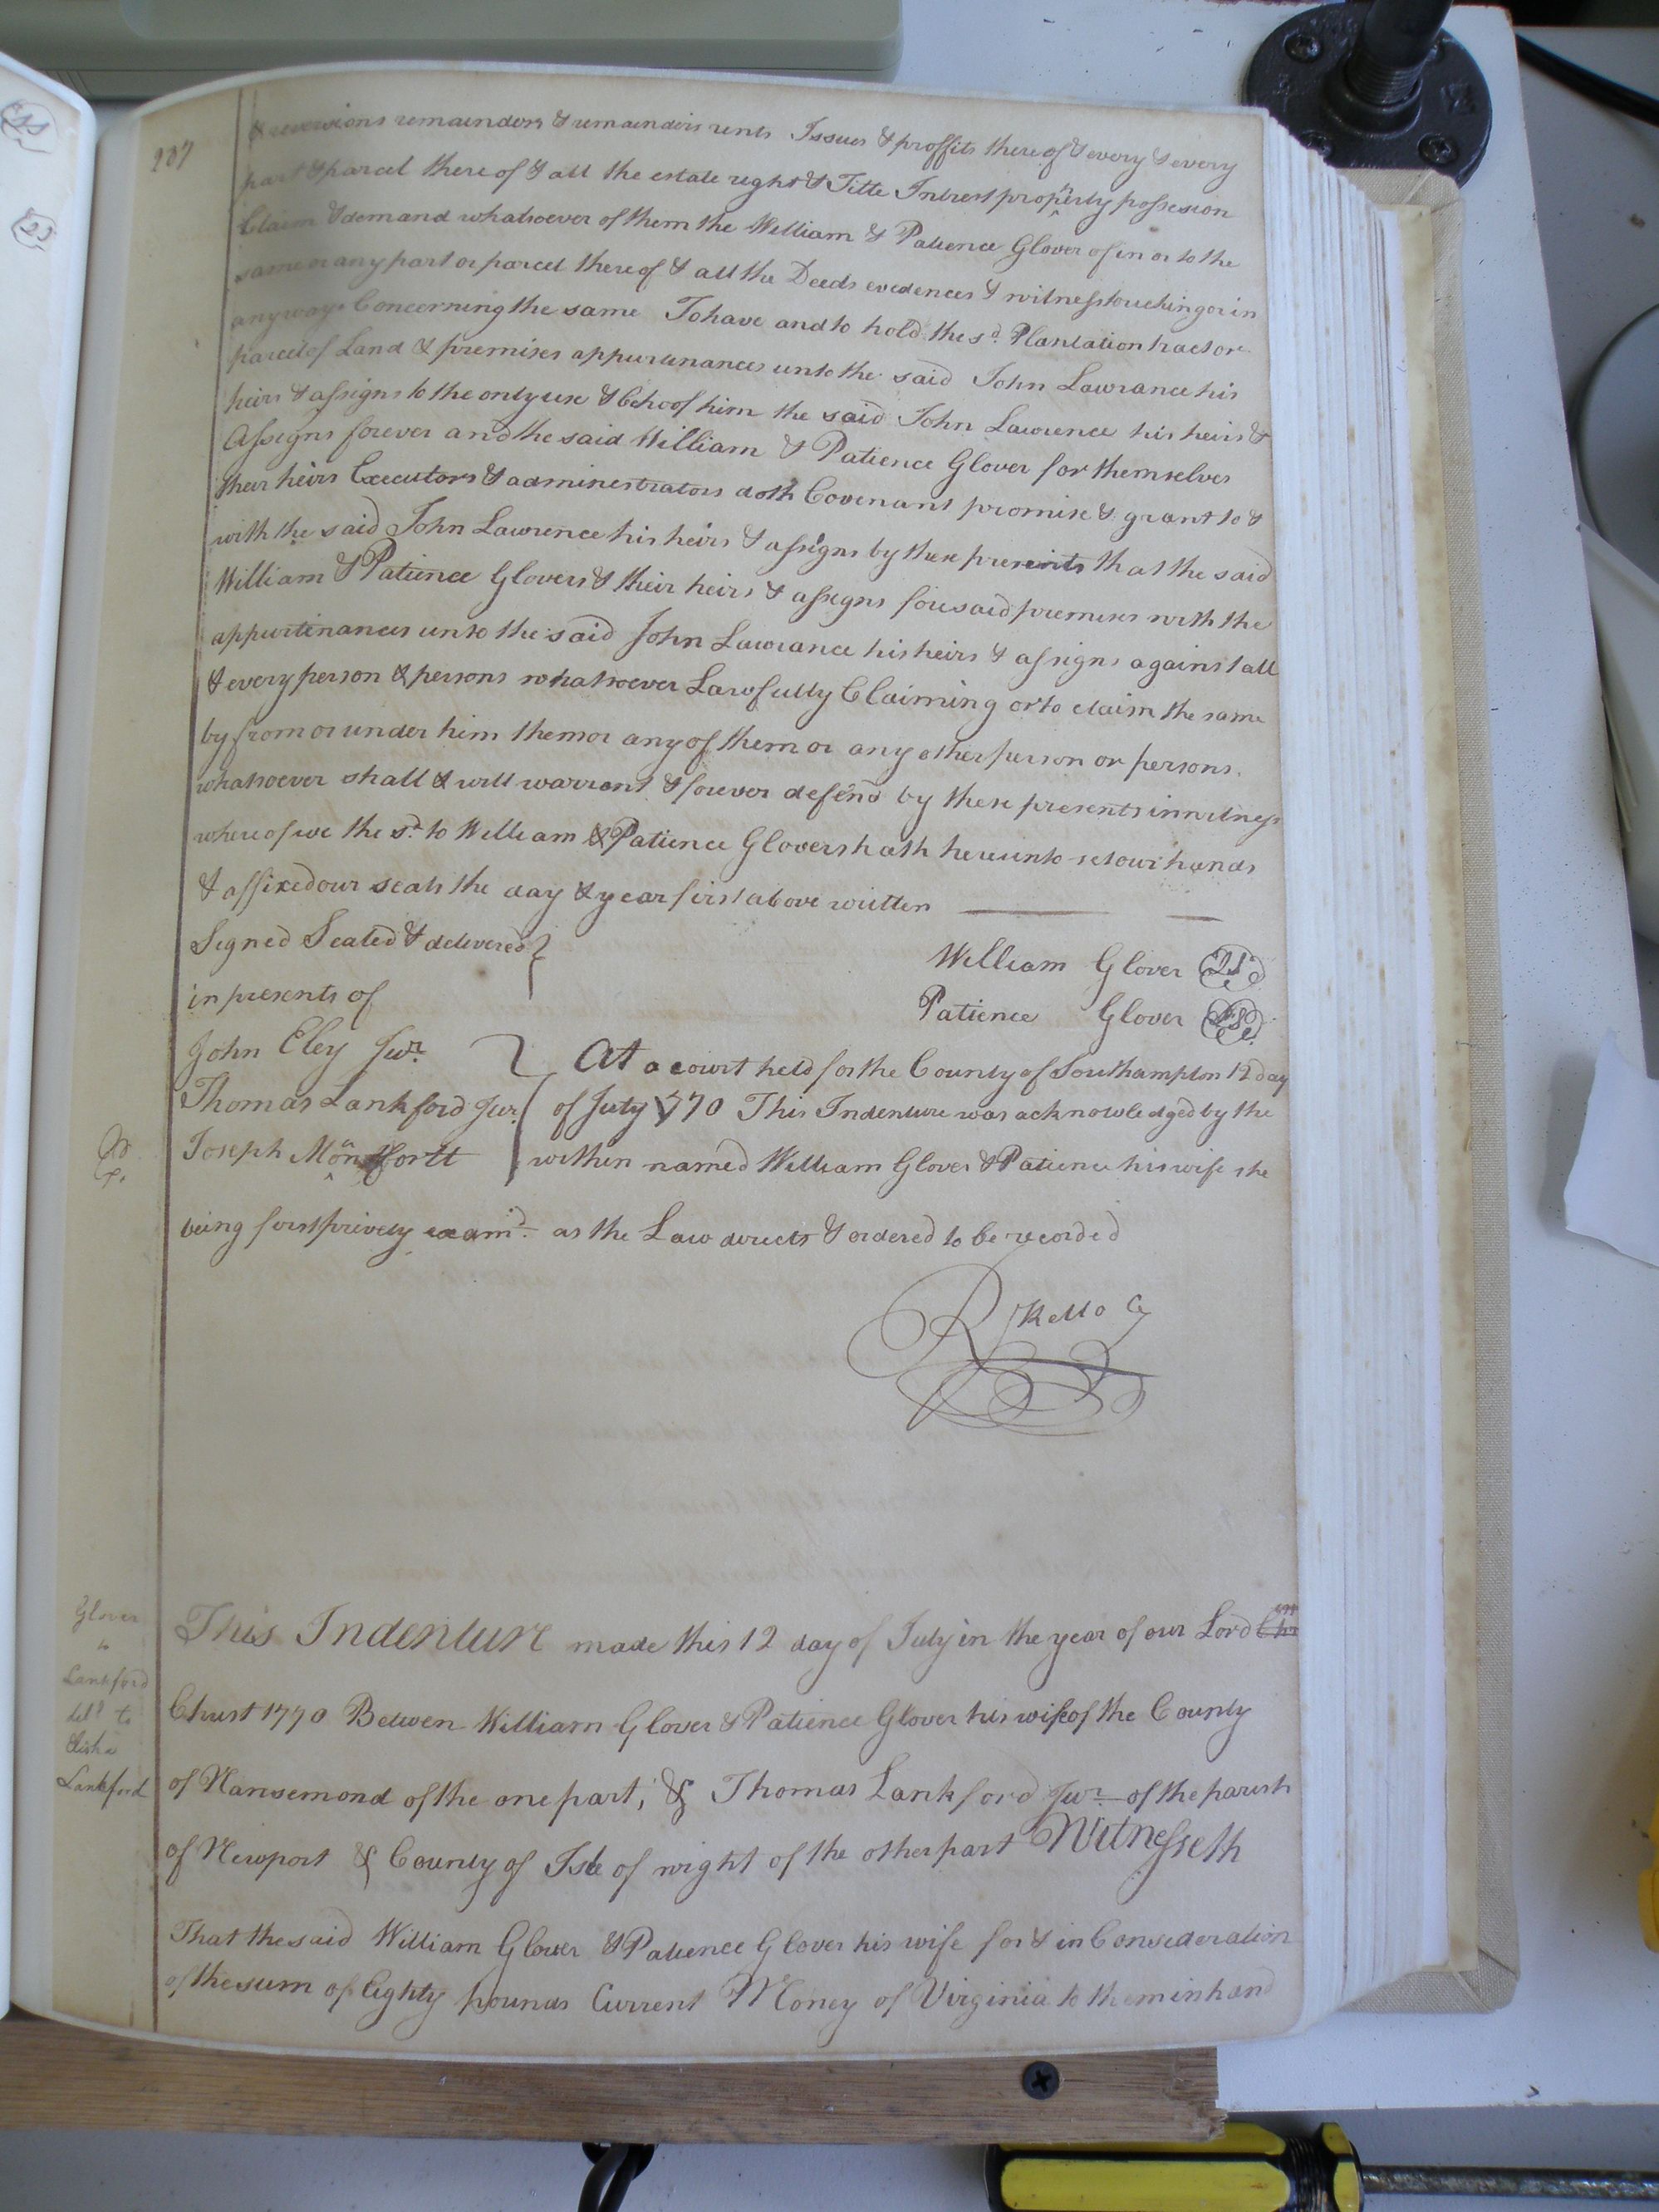 207
& reversions remainders & remainders rents Issues & proffits there of & every & every
part & parcel there of & all the estate reght & Title Intrest property possesion
Claim & demand whatsoever of them the William & Patience Glover of in or to the
same or any part or parcel there of & all the Deeds evedences & witness touching or in
any ways Concerning the same To have and to hold the sd. Plantation tract or
parcel of Land & premises appurtenances unto the said John Lawrance his
heirs & assigns to the only use & behoof him the said John Lawrence his heirs &
Assigns forever and the said William & Patience Glover for themselves
their heirs Executors & administrators doth Covenant promise & grant to &
with the said John Lawrence his heirs & assigns by these presents that the said
William & Patience Glovers & their heirs & assegns foresaid premises with the
appurtenances unto the said John Lawrance his heirs & assigns against all
& every person & persons whatsoever Lawfully Claiming or to claim the same
by from or under him them or any of them or any other person or persons
whatsoever shall & will warrant & forever defend by these presents in witness
where of we the sd. to William & Patience Glovers hath hereunto set our hands
& affixed our seals the day & year first above written
Signed Sealed & delivered
in presents of
William Glover LS
Patience Glover LS
John Eley Jur.
Thomas Lankford Jur.
Joseph Montfortt
At a court held for the County of Southampton 12 day
of July 1770 This Indenture was acknowledged by the
within named William Glover & Patience his wife she
being first privery examd. as the Law directs & ordered to be recorded
R Kello C
Glover
to
Lankford
deld to
Elisha
Lankford
This Indenture made this 12 day of July in the year of our Lord Chr
Christ 1770 Betwen William Glover & Patience Glover his wife of the County
of Nansemond of the one part, & Thomas Lankford Jur. of the parish
of Newport & County of Isle of wight of the other part Witnesseth
That the said William Glover & Patience Glover his wife for & in Consederation
of the sum of Eighty pounds Current Money of Virginia to them in hand